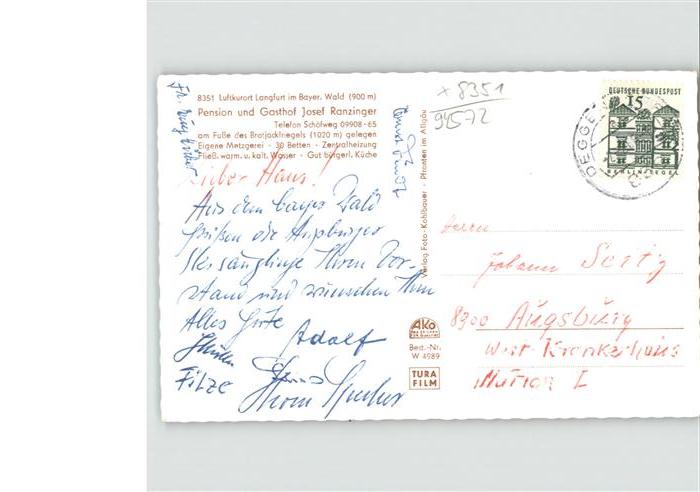 8351 Luftkurort Langfurt im Bayer. Wald (900 m)
Pension und Gasthof Josef Ranzinger
Telefon Schöfweg 09908-65
am Fuße des Brotjackfriegels (1020 m) gelegen
Eigene Metzgerei - 30 Betten - Zentralheizung
Fließ. warm. u. kalt. Wasser - Gut bürgerl. Küche
Lieber Hans!
Aus dem bayer. Wald
grüßen die Augsburger
Skisäuglinge Ihren Vor-
stand und wünschen Ihm
Alles Gute
Adolf
Fitze
Verlag Foto-Kohlbauer - Pfronten im Allgäu
x 8351
94572
DEUTSCHE BUNDESPOST
15
BERLIN-TEGEL
DEGGE
Herrn
Johann
8300 Augsburg
West-Krankenhaus
AKO
Best.-Nr.
W 4989
TURA
FILM